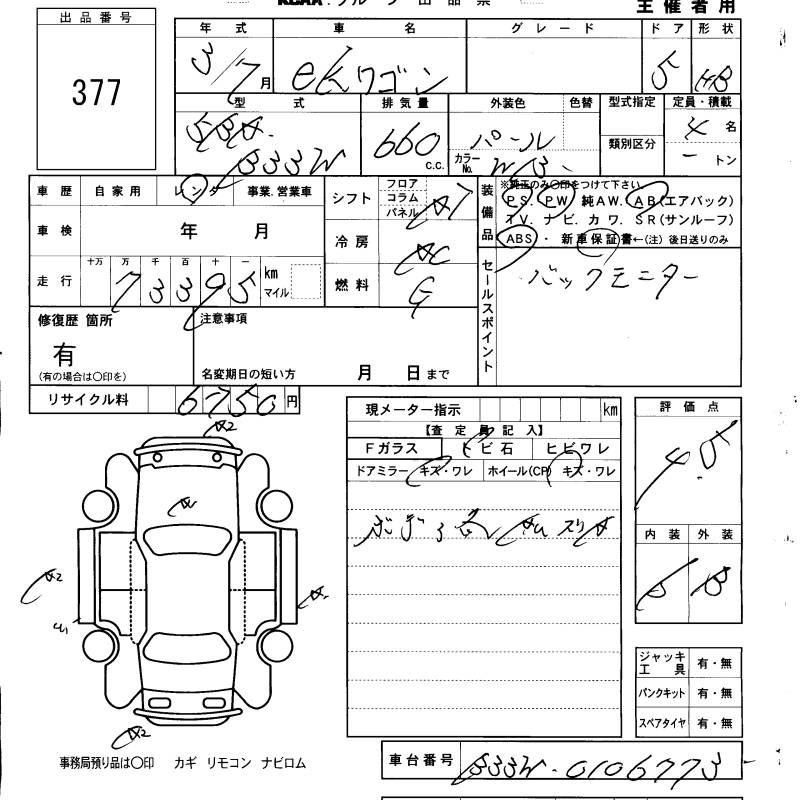 出品番号
377
主催者用
年式 車名 グレード ドア 形状
3/7月 ekワゴン 5 HB
型式 排気量 外装色 色替 型式指定 定員・積載
5BA- B33W 660 c.c. パール 4名
カラーNo. W13 類別区分 - トン
車歴 自家用 レンタ 事業.営業車
車検 年 月
走行 十万 万 千 百 十 一 km マイル
73395
シフト フロア コラム パネル AT
冷房 AC
燃料 G
装備品 ※純正のみ〇印をつけて下さい。
PS. PW 純AW. AB(エアバック)
TV. ナビ. カワ. SR(サンルーフ)
ABS ・ 新車保証書←(注) 後日送りのみ
セールスポイント バックモニター
修復歴 箇所
有
(有の場合は〇印を)
注意事項
名変期日の短い方 月 日まで
リサイクル料 6750円
現メーター指示 km
【査定員記入】
Fガラス トビ石 ヒビワレ
ドアミラー キズ・ワレ ホイール(CP) キズ・ワレ
評価点
4.5
内装 外装
B B
A2
A
A2
A2
ジャッキ 工具 有・無
パンクキット 有・無
スペアタイヤ 有・無
事務局預り品は〇印 カギ リモコン ナビロム
車台番号 B33W-0106773